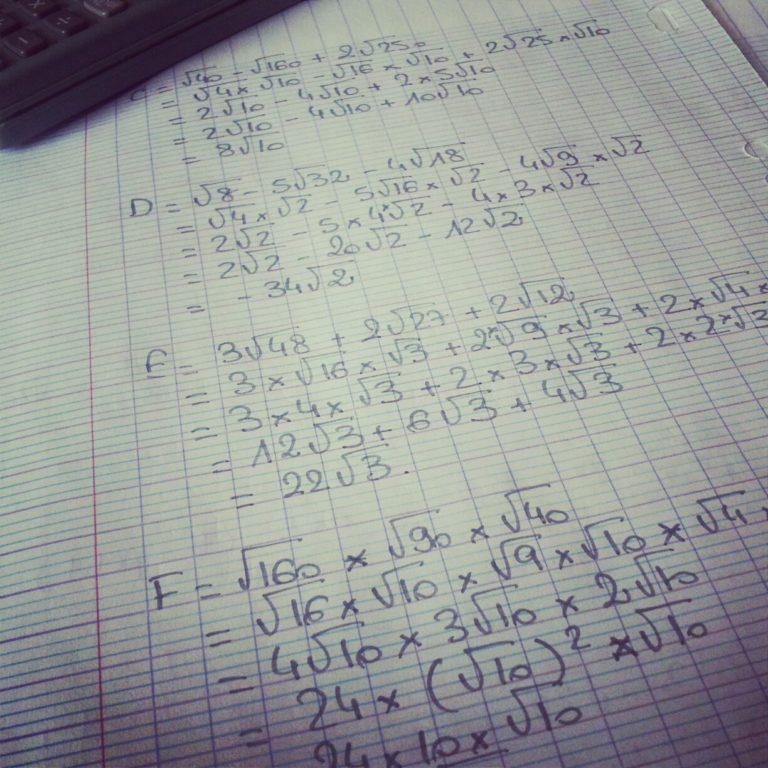 C = √40 - √160 + 2√250
= √4 × √10 - √16 × √10 + 2√25 × √10
= 2√10 - 4√10 + 2×5√10
= 2√10 - 4√10 + 10√10
= 8√10
D = √8 - 5√32 - 4√18
= √4 × √2 - 5√16 × √2 - 4√9 × √2
= 2√2 - 5×4√2 - 4×3×√2
= 2√2 - 20√2 - 12√2
= -34√2
E = 3√48 + 2√27 + 2√12
= 3 × √16 × √3 + 2×√9 × √3 + 2 × √4 ×
= 3 × 4 × √3 + 2 × 3 × √3 + 2 × 2 × √3
= 12√3 + 6√3 + 4√3
= 22√3.
F = √160 × √90 × √40
= √16 × √10 × √9 × √10 × √4
= 4√10 × 3√10 × 2√10
= 24 × (√10)² × √10
24 × 10 × √10